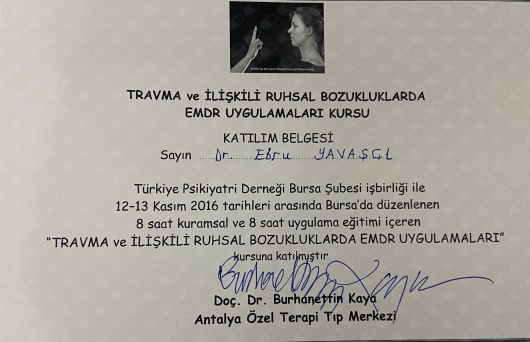 TRAVMA ve İLİŞKİLİ RUHSAL BOZUKLUKLARDA
EMDR UYGULAMALARI KURSU
KATILIM BELGESİ
Sayın Dr. Ebru YAVAŞÇI
Türkiye Psikiyatri Derneği Bursa Şubesi işbirliği ile
12-13 Kasım 2016 tarihleri arasında Bursa'da düzenlenen
8 saat kuramsal ve 8 saat uygulama eğitimi içeren
"TRAVMA ve İLİŞKİLİ RUHSAL BOZUKLUKLARDA EMDR UYGULAMALARI"
kursuna katılmıştır
Doç. Dr. Burhanettin Kaya
Antalya Özel Terapi Tıp Merkezi